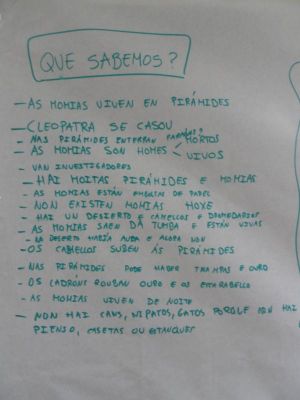 QUE SABEMOS?
- AS MOMIAS VIVEN EN PIRÁMIDES
- CLEOPATRA SE CASOU
- NAS PIRÁMIDES ENTERRAN FARAÓNS?
- AS MOMIAS SON HOMES MORTOS VIVOS
- VAN INVESTIGADORES
- HAI MOITAS PIRÁMIDES E MOMIAS
- AS MOMIAS ESTÁN ENVOLTAS DE PAPEL
- NON EXISTEN MOMIAS HOXE
- HAI UN DESIERTO E CAMELLOS E DROMEDARIOS
- AS MOMIAS SAEN DA TUMBA E ESTÁN VIVAS
- NO DESERTO HABÍA AUGA E AGORA NON
- OS CABALLOS SUBEN ÁS PIRÁMIDES
- NAS PIRÁMIDES PODE HABER TRAMPAS E OURO
- OS LADRÓNS ROUBAN OURO E OS ESCARABELLO
- AS MOMIAS VIVEN DE NOITE
- NON HAI CANS, NI PATOS, GATOS PORQUE NON HAI
PIENSO, CASETAS OU ESTANQUES